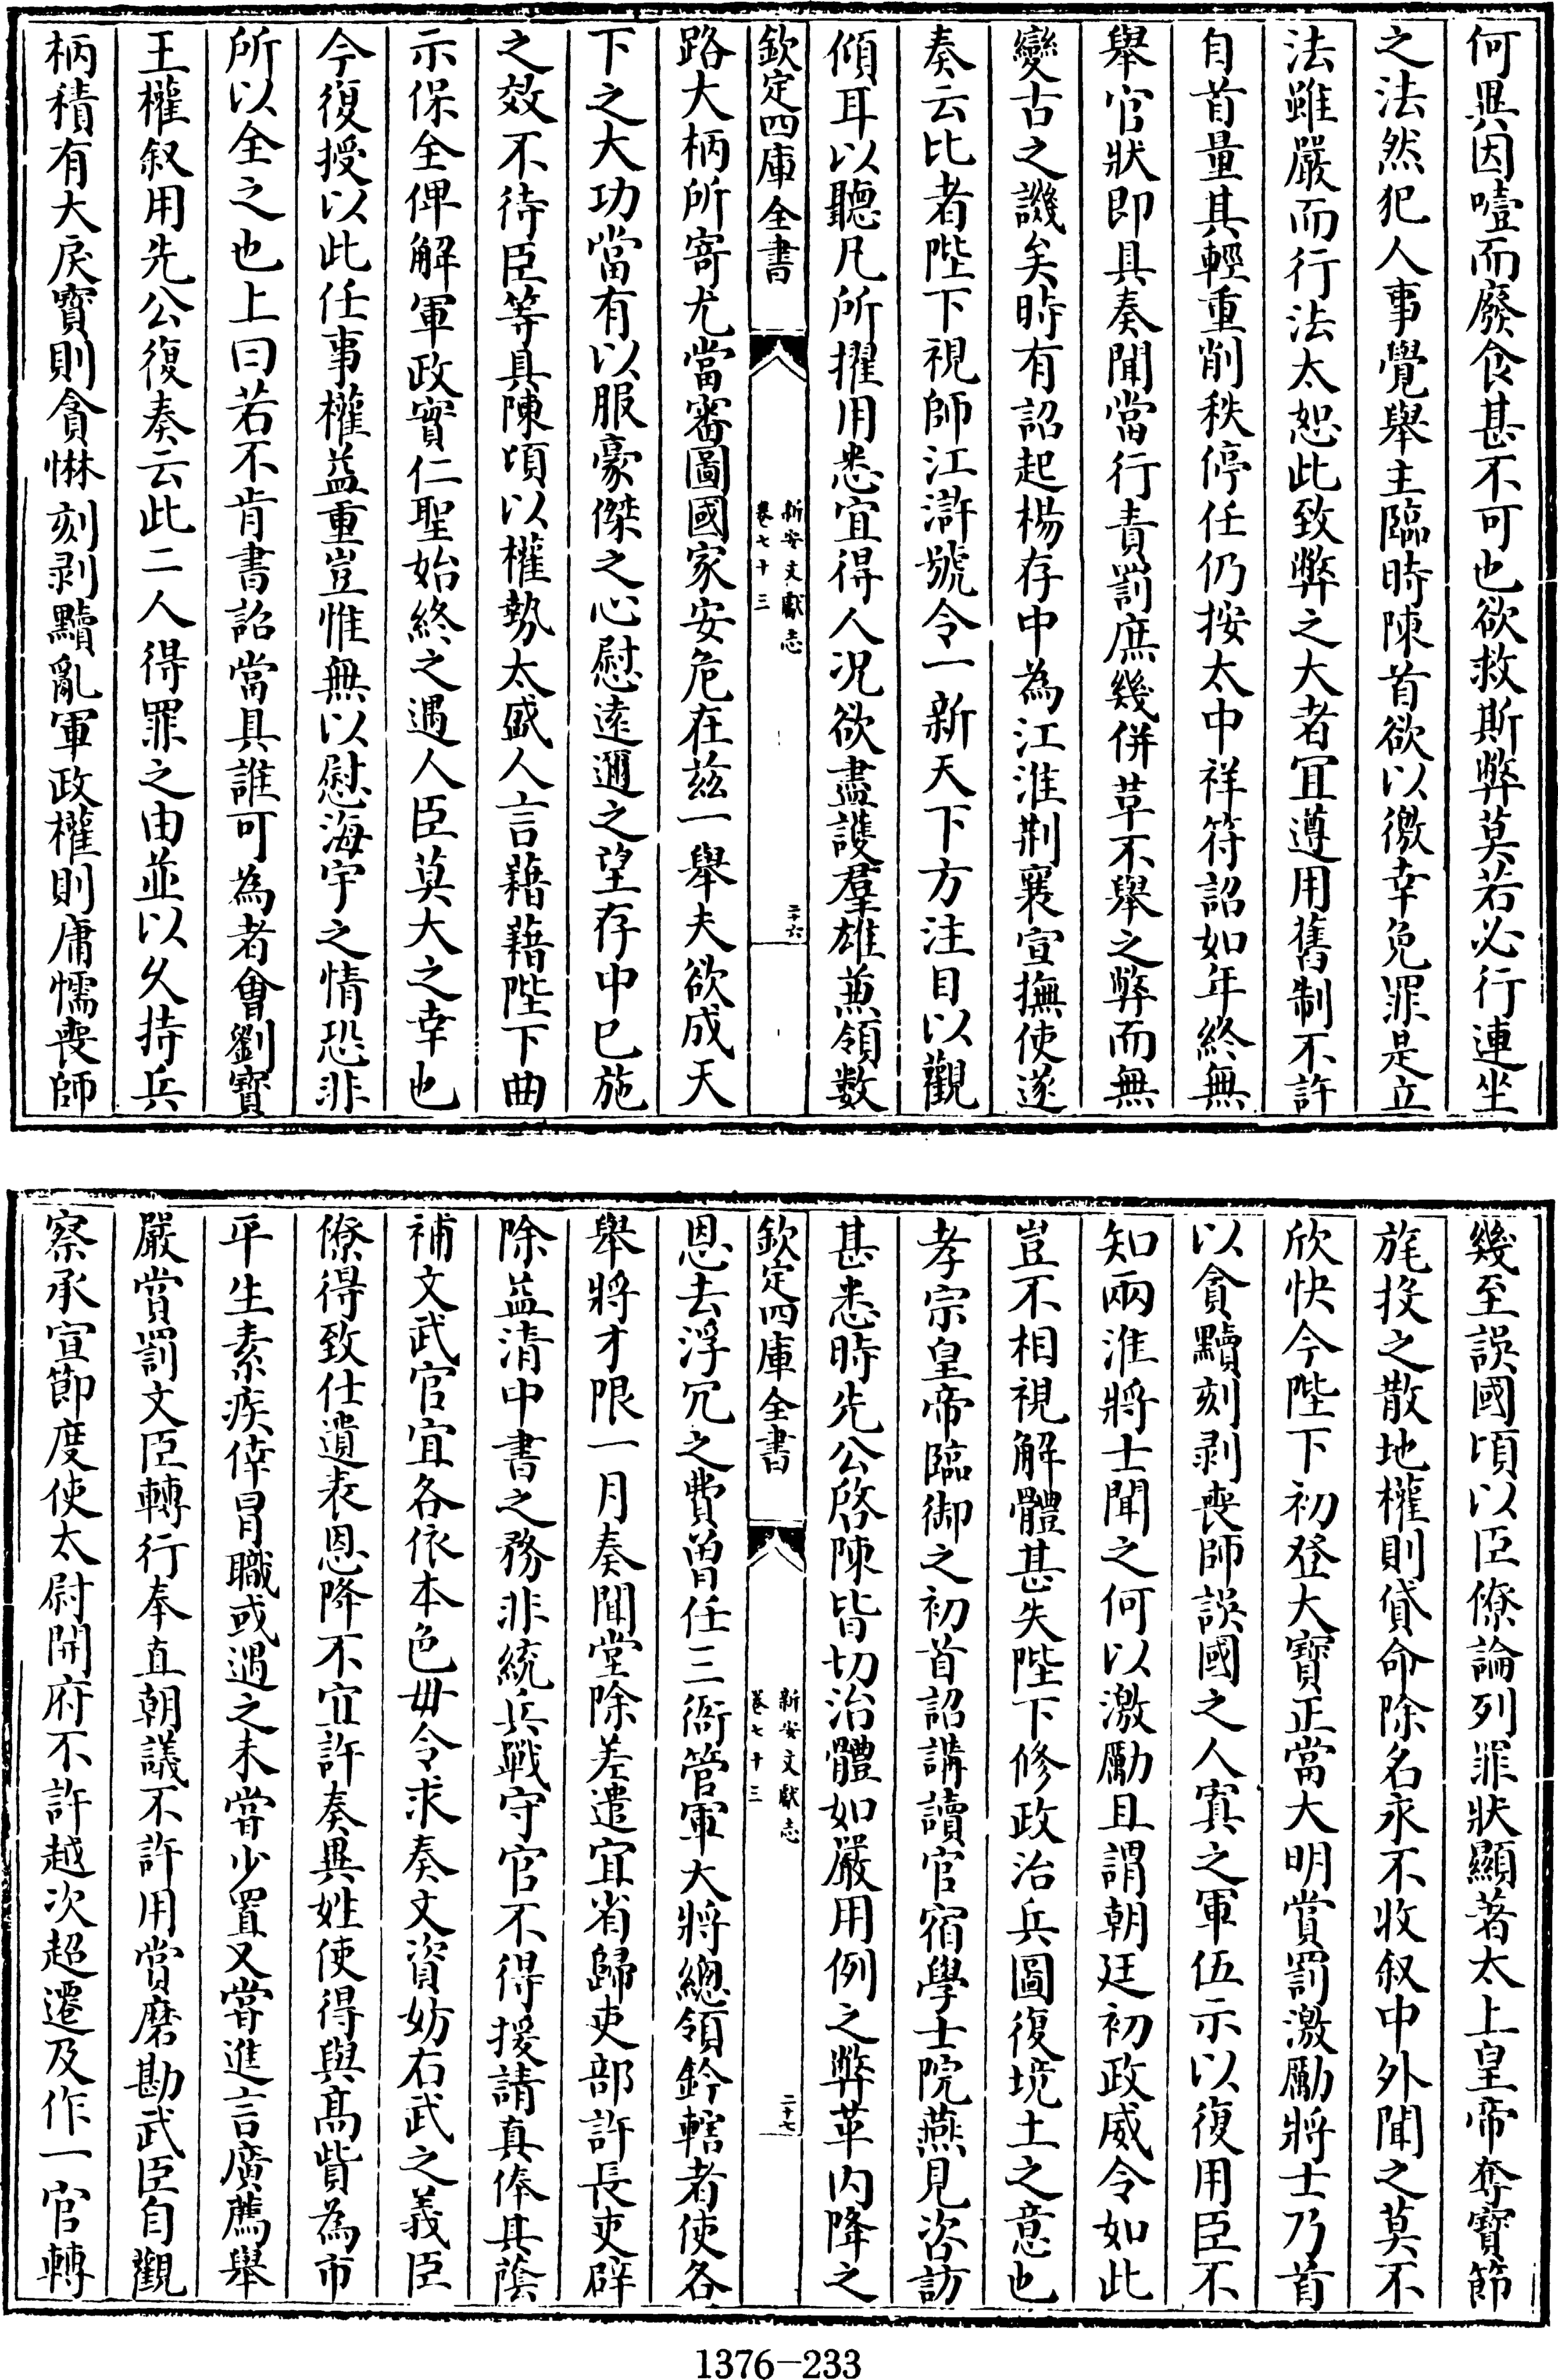 何異因噎而廢食甚不可也欲救斯弊莫若必行連坐
之法然犯人事覺舉主臨時陳首欲以徼幸免罪是立
法雖嚴而行法太恕此致弊之大者宜遵用舊制不許
自首量其輕重削秩停任仍按太中祥符詔如年終無
舉官狀即具奏聞當行責罰庶幾併革不舉之弊而無
變古之譏矣時有詔起楊存中為江淮荆襄宣撫使遂
奏云比者陛下視師江滸號令一新天下方注目以觀
傾耳以聽凡所擢用悉宜得人况欲盡護羣雄兼領數
欽定四庫全書
新安文獻志
卷七十三
二十六
路大柄所寄尤當審圖國家安危在兹一舉夫欲成天
下之大功當有以服豪傑之心慰遠邇之望存中已施
之效不待臣等具陳頃以權勢太盛人言藉藉陛下曲
示保全俾解軍政實仁聖始終之遇人臣莫大之幸也
今復授以此任事權益重豈惟無以慰海宇之情恐非
所以全之也上曰若不肯書詔當具誰可為者會劉寳
王權叙用先公復奏云此二人得罪之由並以久持兵
柄積有大戾寳則貪惏刻剥黷亂軍政權則庸懦喪師
幾至誤國頃以臣僚論列罪狀顯著太上皇帝奪寳節
旄投之散地權則貸命除名永不收叙中外聞之莫不
欣快今陛下初登大寳正當大明賞罰激勵將士乃首
以貪黷刻剥喪師誤國之人寘之軍伍示以復用臣不
知兩淮將士聞之何以激勵且謂朝廷初政威令如此
豈不相視解體甚失陛下修政治兵圖復境土之意也
孝宗皇帝臨御之初首詔講讀官宿學士院燕見咨訪
甚悉時先公啓陳皆切治體如嚴用例之弊革内降之
欽定四庫全書
新安文獻志
卷七十三
二十七
恩去浮冗之費曽任三衙管軍大將總領鈐轄者使各
舉將才限一月奏聞堂除差遣宜省歸吏部許長吏辟
除益清中書之務非統兵戰守官不得援請真俸其蔭
補文武官宜各依本色毋令求奏文資妨右武之義臣
僚得致仕遺表恩降不宜許奏異姓使得與髙貲為市
平生素疾倖冒職或遇之未嘗少置又嘗進言廣薦舉
嚴賞罰文臣轉行奉直朝議不許用賞磨勘武臣自觀
察承宣節度使太尉開府不許越次超遷及作一官轉
1376-233